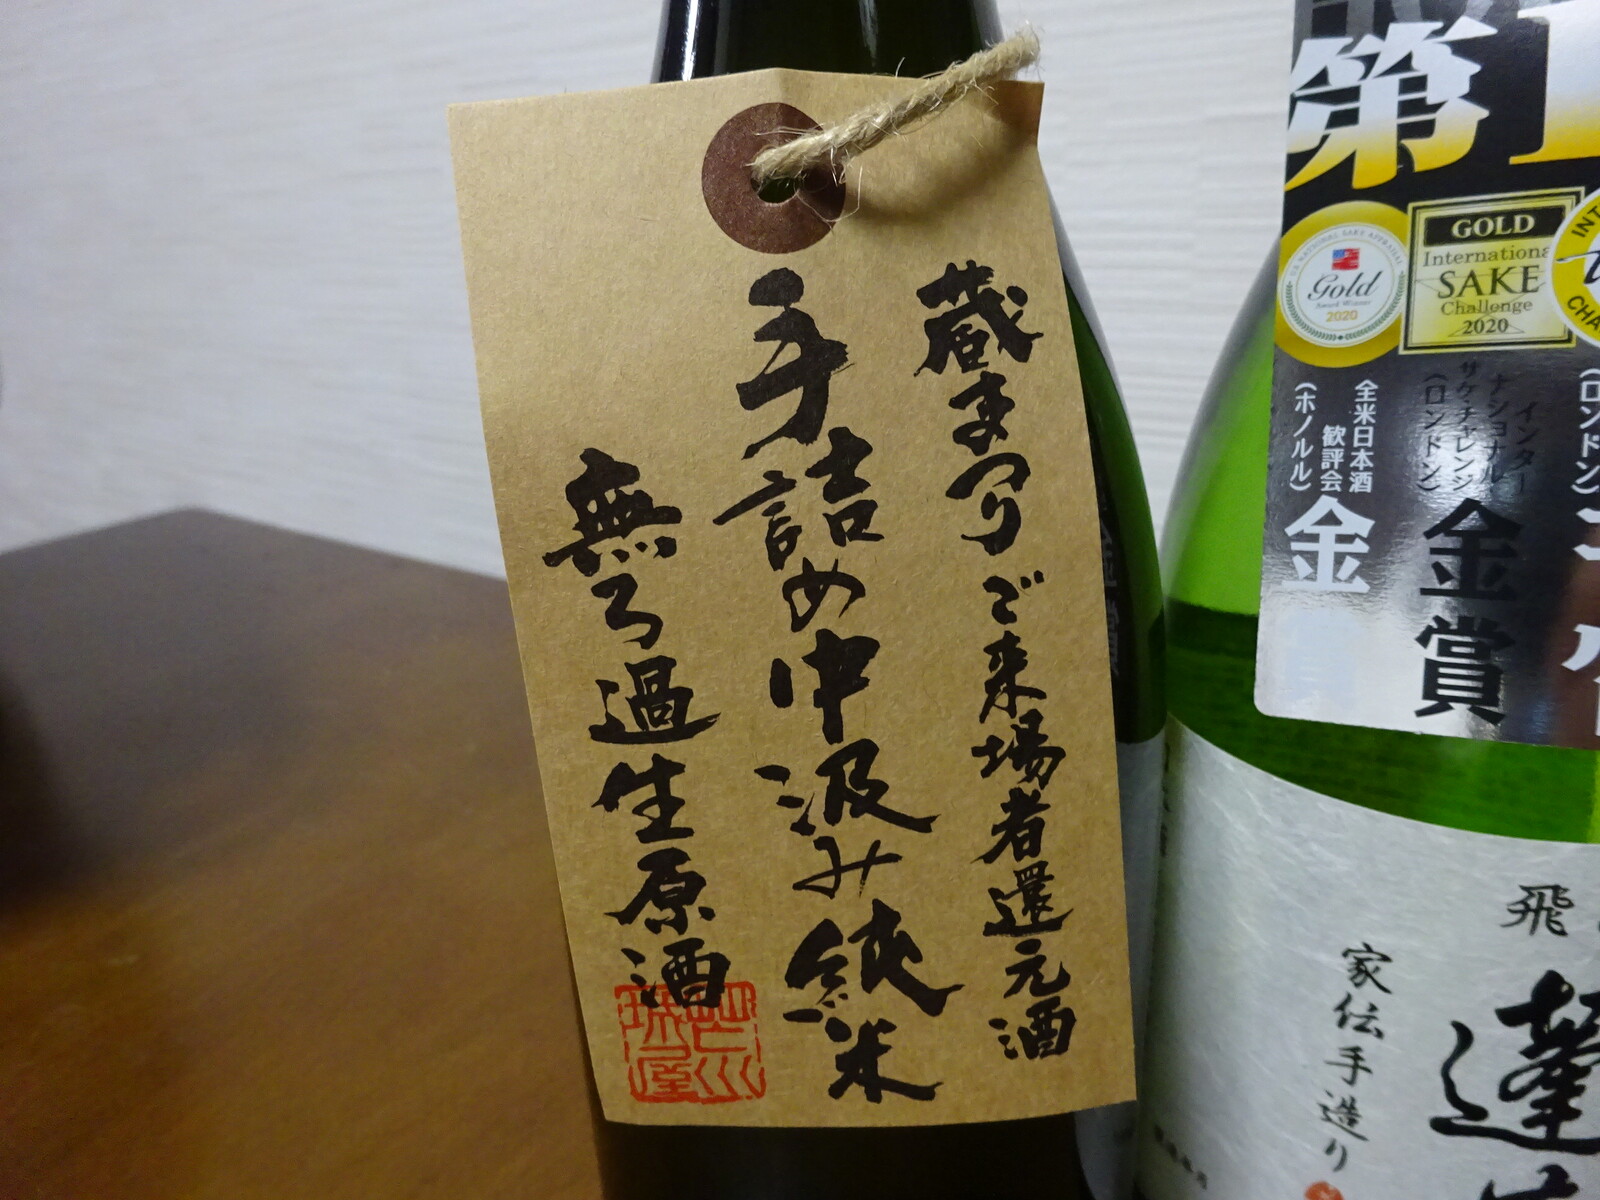 蔵まつり ご来場者還元酒
手詰め中汲み純米
無ろ過生原酒
第1
Gold
Award Winner
2020
GOLD
International
SAKE
Challenge
2020
全米日本酒
歓評会
(ホノルル)
金
インター
ナショナル
サケ・チャレンジ
(ロンドン)
金賞
(ロンドン)
飛
家伝手造り
蓬